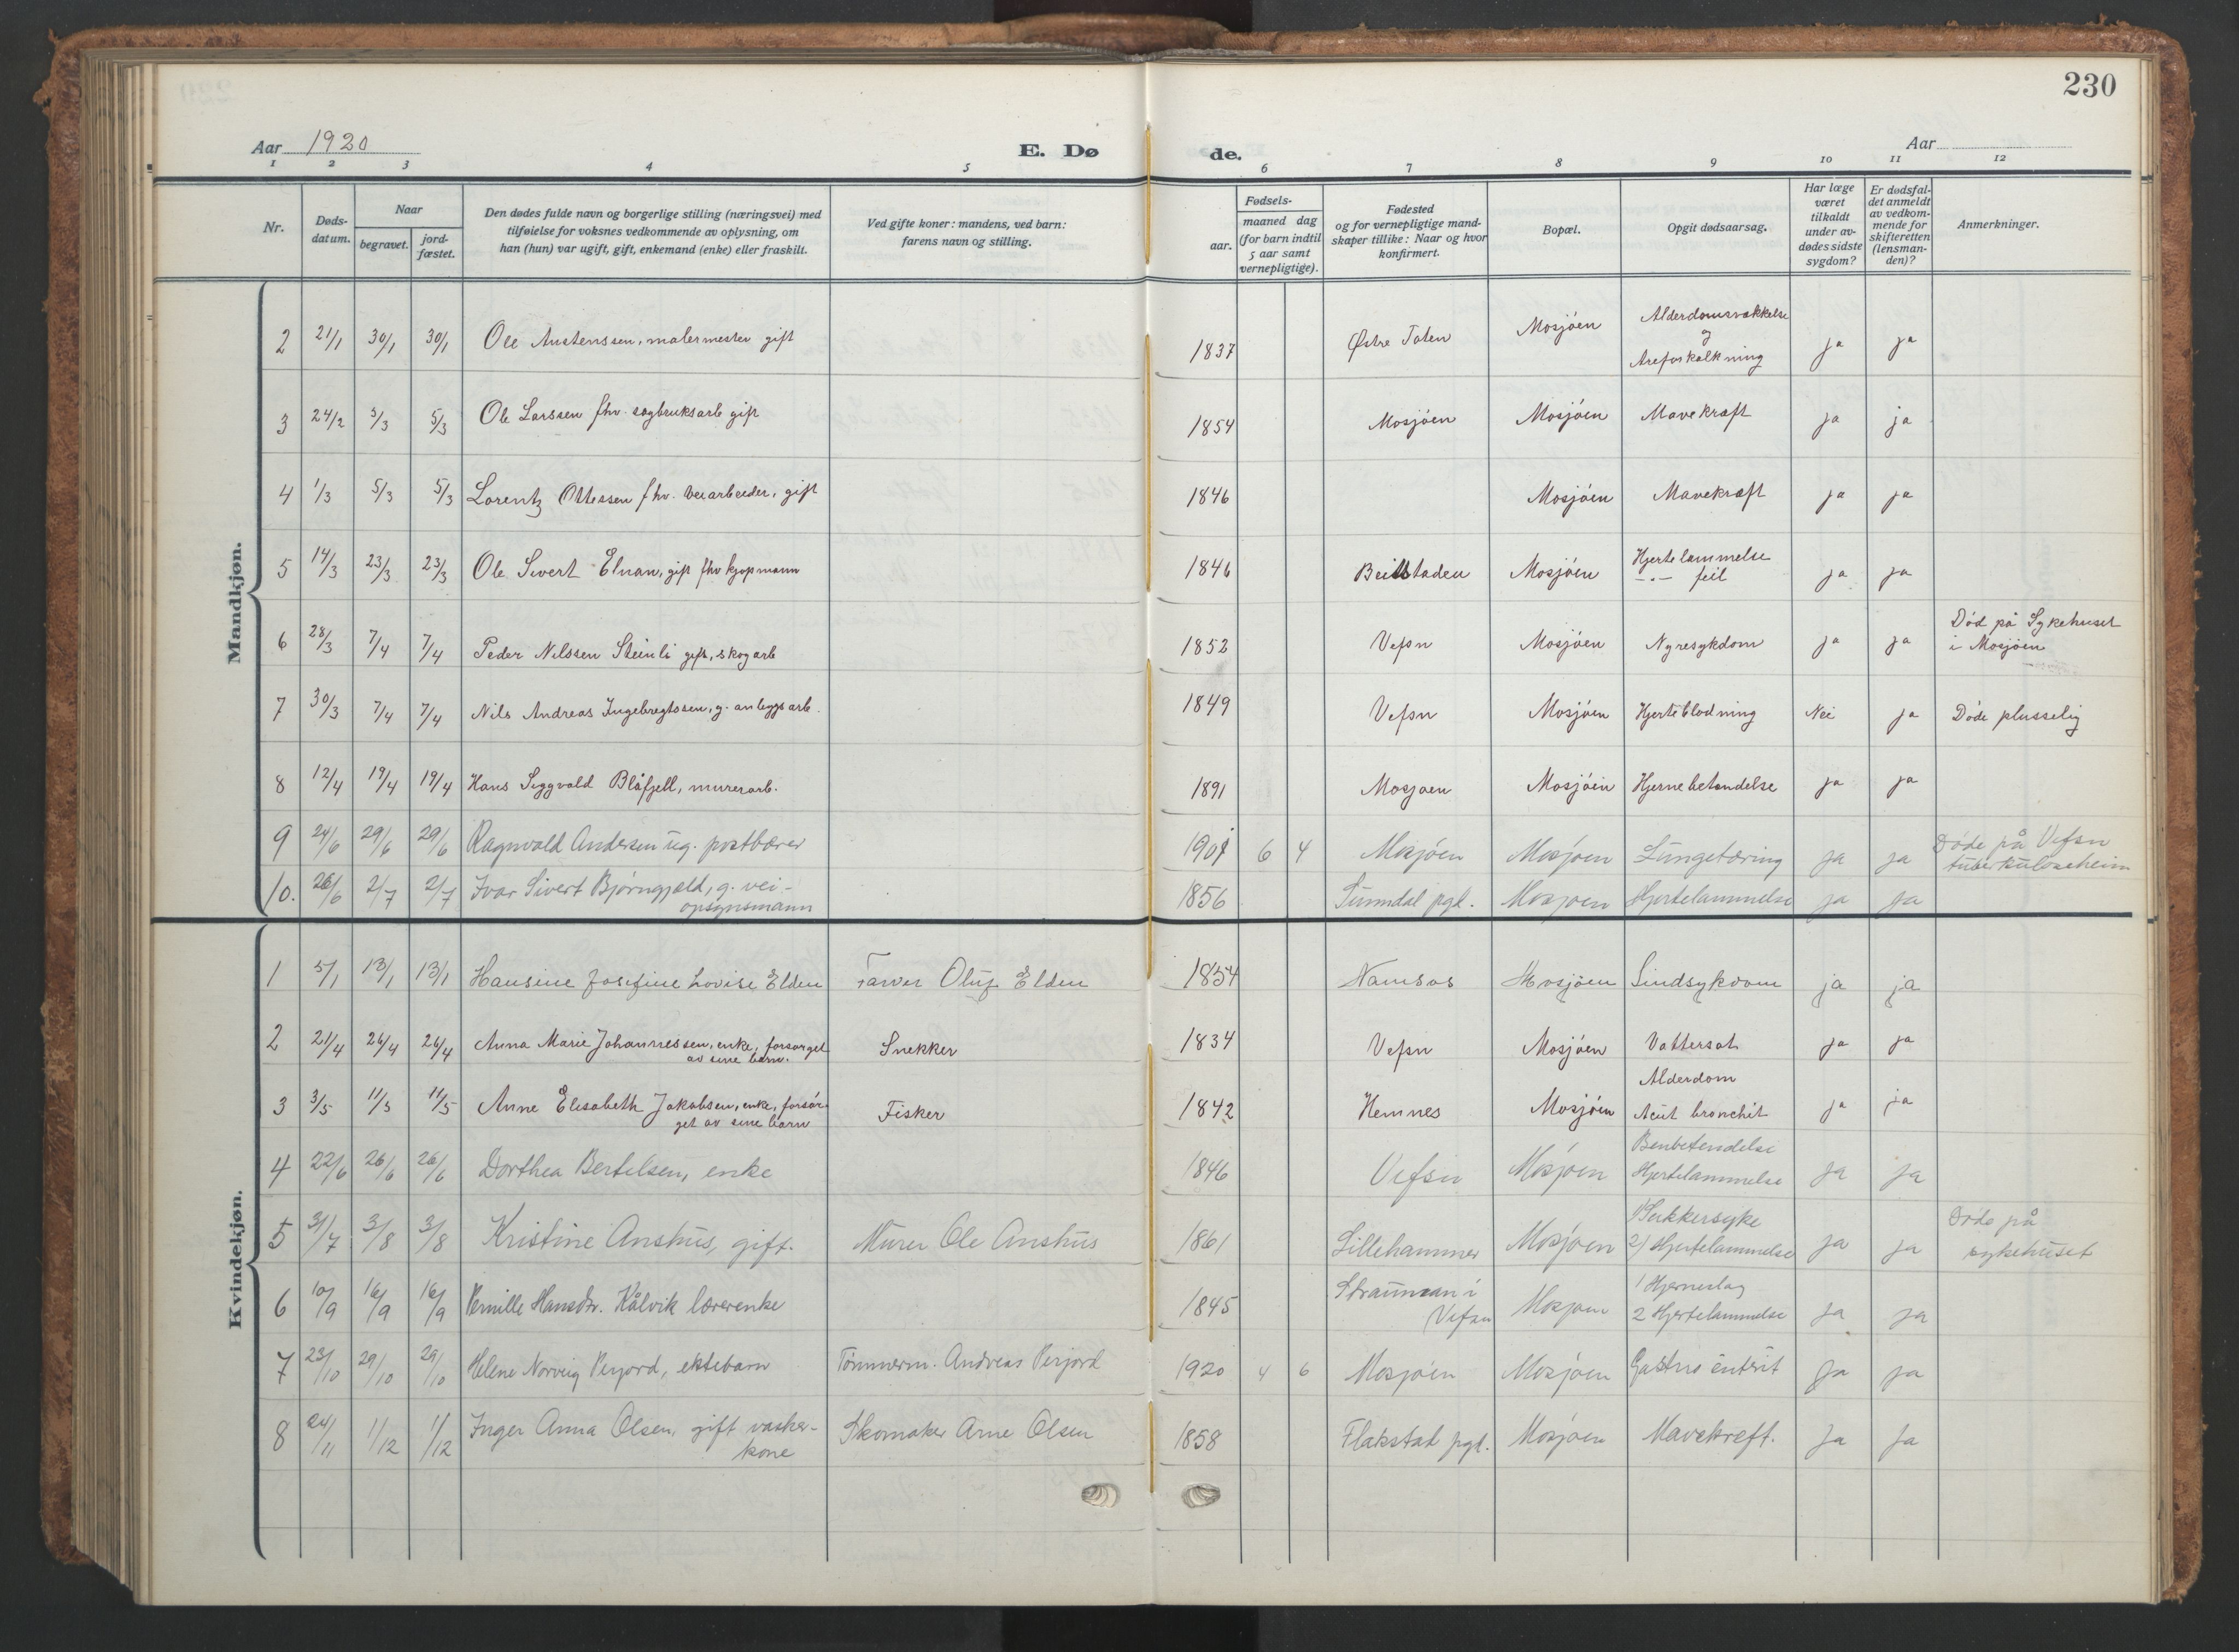 230
Aar 1920
E. Dø
de.
Aar
1 2 3 4 5 6 7 8 9 10 11 12
Nr.
Døds-
datum.
Naar
begravet.
jord-
fæstet.
Den dødes fulde navn og borgerlige stilling (næringsvei) med
tilføielse for voksnes vedkommende av oplysning, om
han (hun) var ugift, gift, enkemand (enke) eller fraskilt.
Ved gifte koner: mandens, ved barn:
farens navn og stilling.
Fødsels-
aar.
maaned dag
(for barn indtil
5 aar samt
vernepligtige).
Fødested
og for vernepligtige mand-
skaper tillike: Naar og hvor
konfirmert.
Bopæl.
Opgit dødsaarsag.
Har læge
været
tilkaldt
under av-
dødes sidste
sygdom?
Er dødsfal-
det anmeldt
av vedkom-
mende for
skifteretten
(lensman-
den)?
Anmerkninger.
Mandkjøn.
2 21/1 30/1 30/1 Ole Austenssen, malermester gift 1837 Østre Toten Mosjöen Alderdomssvekkelse
og
Areforkalkning ja ja
3 24/2 5/3 5/3 Ole Larssen fhv. sagbruksarb gift 1854 Mosjöen Mosjöen Mavekræft ja ja
4 1/3 5/3 5/3 Lorentz Ottessen fhv. veiarbeider, gift 1846 Mosjöen Mavekræft ja ja
5 14/3 23/3 23/3 Ole Sivert Elnan, gift fhv kjøpmann 1846 Beitstaden Mosjöen Hjertelammelse
-"- feil ja ja
6 28/3 7/4 7/4 Peder Nilssen Steinli gift, skogarb 1852 Vefsn Mosjöen Nyresykdom ja ja Död på Sykehuset
i Mosjöen
7 30/3 7/4 7/4 Nils Andreas Ingebregtssen, g. anleggsarb. 1849 Vefsn Mosjöen Hjerteblödning Nei ja Döde plusselig
8 12/4 19/4 19/4 Hans Siggvald Blåfjell, murerarb. 1891 Mosjøen Mosjöen Hjernebetendelse ja ja
9 24/6 29/6 29/6 Ragnvald Andersen ug. postbærer 1901 6 4 Mosjöen Mosjöen Lungetæring ja ja Döde på Vefsn
tuberkuloseheim
10. 26/6 2/7 2/7 Ivar Sivert Bjørngjeld, g. vei-
opsynsmann 1856 Sunndal pgl. Mosjøen Hjertelammelse ja ja
Kvindekjøn.
1 5/1 13/1 13/1 Hansine Josefine Lovise Elden Farver Oluf Elden 1854 Namsos Mosjöen Sindsykdom ja ja
2 21/4 26/4 26/4 Anna Marie Johannessen, enke, forsørget
av sine barn. Snekker 1834 Vefsn Mosjöen Vattersot ja ja
3 3/5 11/5 11/5 Anne Elisabeth Jakobsen, enke, forsör-
get av sine barn Fisker 1842 Hemnes Mosjöen Alderdom
Acut bronchit ja ja
4 22/6 26/6 26/6 Dorthea Bertelsen, enke 1846 Vefsn Mosjöen Benbetendelse
Hjertelammelse ja ja
5 31/7 3/8 3/8 Kristine Anshus, gift. Murer Ole Anshus 1861 Lillehammer Mosjöen 1) Sukkersyke
2) Hjertelammelse ja ja Döde på
sykehuset
6 10/9 16/9 16/9 Pernille Hansdtr. Kålvik lærerenke 1845 Strauman i
Vefsn Mosjøen 1 Hjerneslag
2 Hjertelammelse ja ja
7 23/10 29/10 29/10 Helene Norveig Perjord, ektebarn Tömmerm. Andreas Perjord 1920 4 6 Mosjöen Mosjöen Gastrо enterit ja ja
8 24/11 1/12 1/12 Inger Anna Olsen, gift vasker-
kone Skomaker Arne Olsen 1858 Flakstat pgl. Mosjöen Mavekreft. ja ja